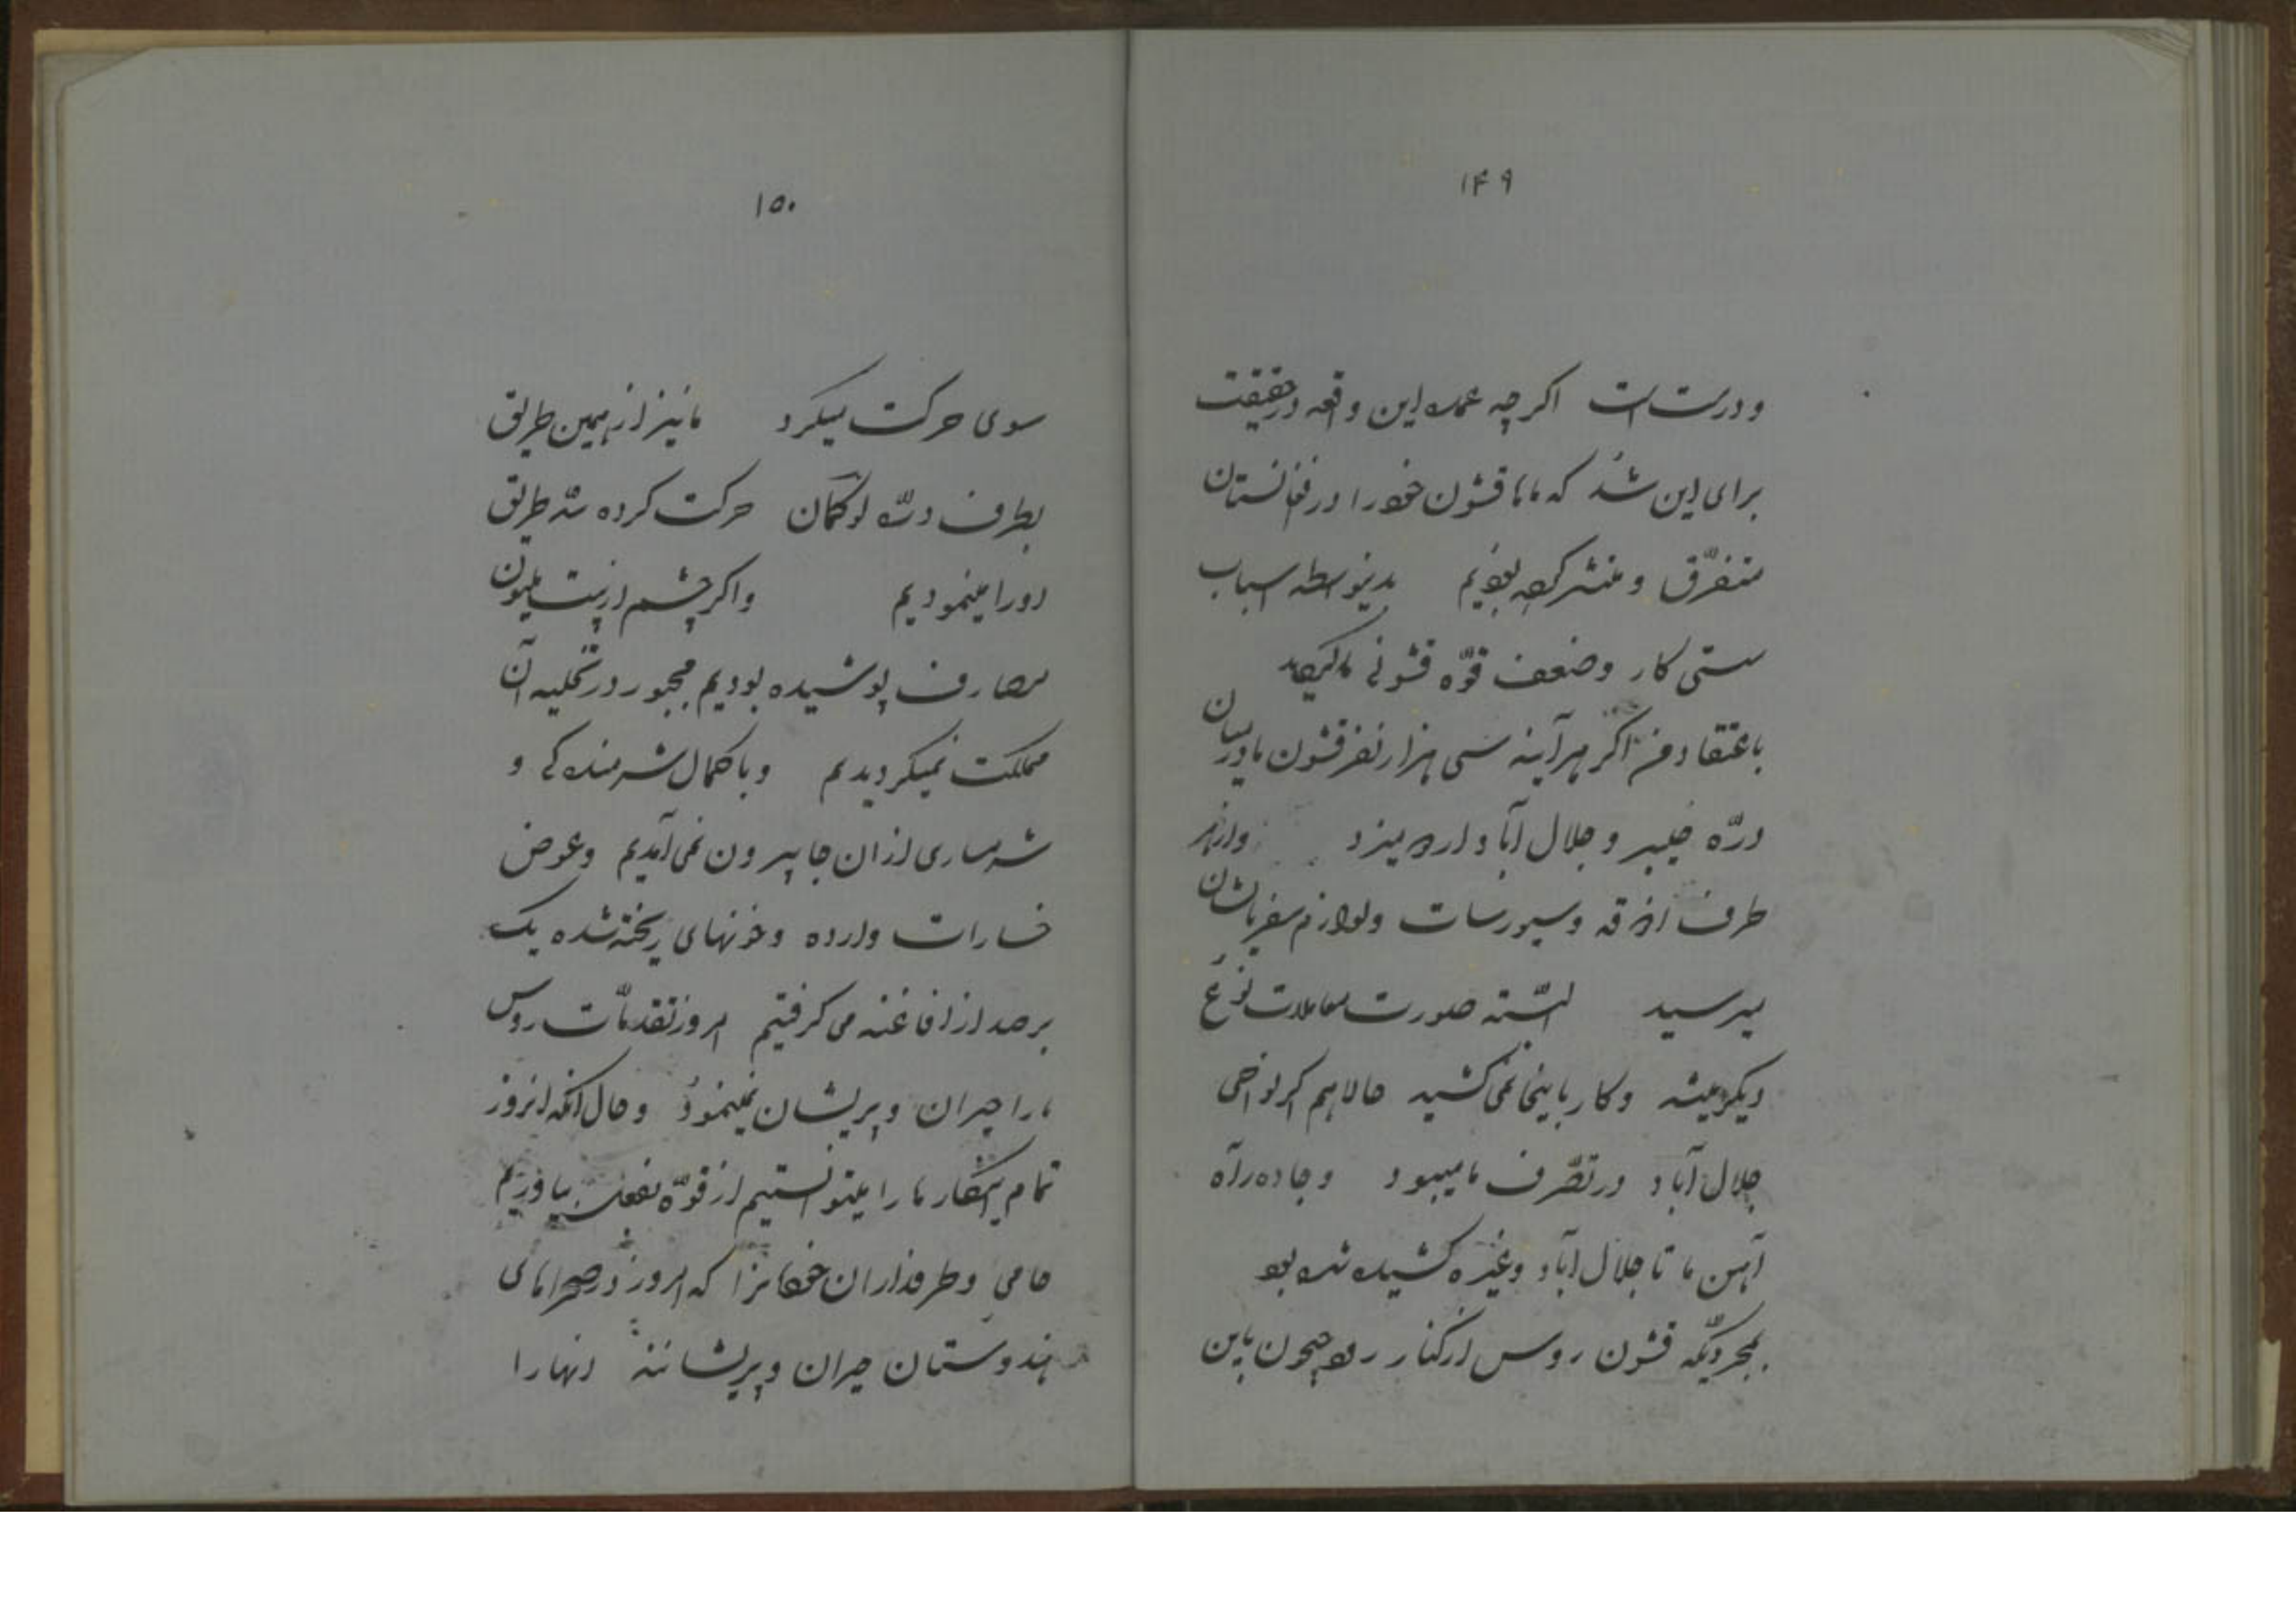 ۱۴۹
و درست است اگرچه عمده این واقعه در حقیقت
برای این شد که ماها قشون خود را در افغانستان
متفرّق و منتشر کرده بودیم بدینواسطه اسباب
سستی کار و ضعف قوّه قشونی ما گردید
باعتقاد من اگر هرآینه سی هزار نفر قشون ما در میان
درّه خیبر و جلال آباد اردو میزد و از هر
طرف آذوقه و سیورسات و لوازم سفر بایشان
میرسید البتّه صورت معاملات نوع
دیگر میشد و کار باینجا نمی کشید حالا هم اگر نواحی
جلال آباد در تصّرف ما میبود و جاده راه
آهن ما تا جلال آباد و غیره کشیده شده بود
بمجرّدیکه قشون روس از کنار رود جیحون باین
۱۵۰
سوی حرکت میکرد ما نیز از همین طریق
بطرف درّه حرکت کرده سدّ طریق
او را مینمودیم و اگر چشم از بیست ملیون
مصارف پوشیده بودیم مجبور در تخلیه آن
مملکت نمیگردیدیم و با کمال شرمندگی و
شرمساری از ان جا بیرون نمی آمدیم و عوض
خسارات وارده و خونهای ریخته شده یک
بر صد از افاغنه می گرفتیم امروز تقدمّات روس
ما را حیران و پریشان نمینمود و حال آنکه انروز
تمام این کار ها را میتوانستیم از قوّه بفعل بیاوریم
حامی و طرفداران خودمانرا که امروز در صحراهای
هندوستان حیران و پریشانند انها را